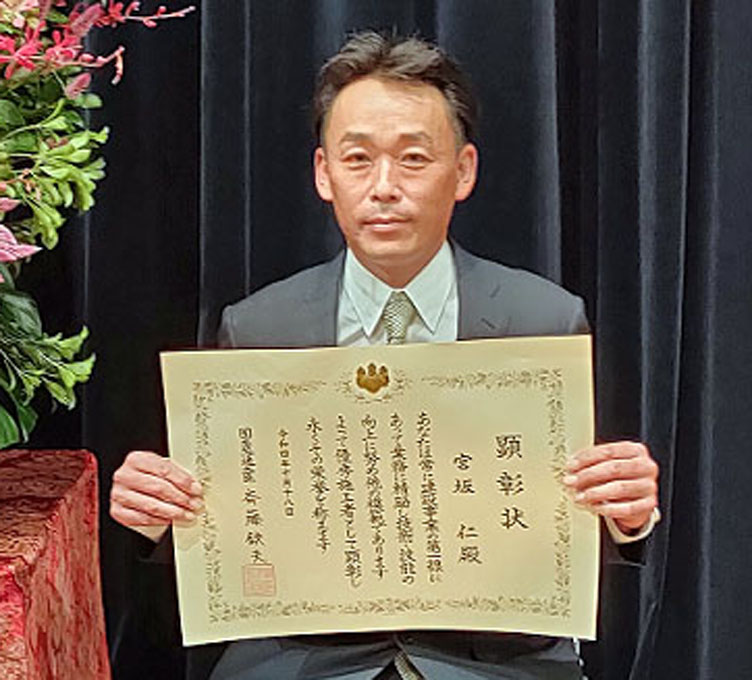 顕彰状
宮坂 仁 殿
あなたは常に建設事業の第一線に
あって業務に精励し技術・技能の
向上に努め他の模範であります
よって優秀施工者として顕彰し
永くその栄誉を称えます
令和四年十月十八日
国土交通大臣 斉藤鉄夫